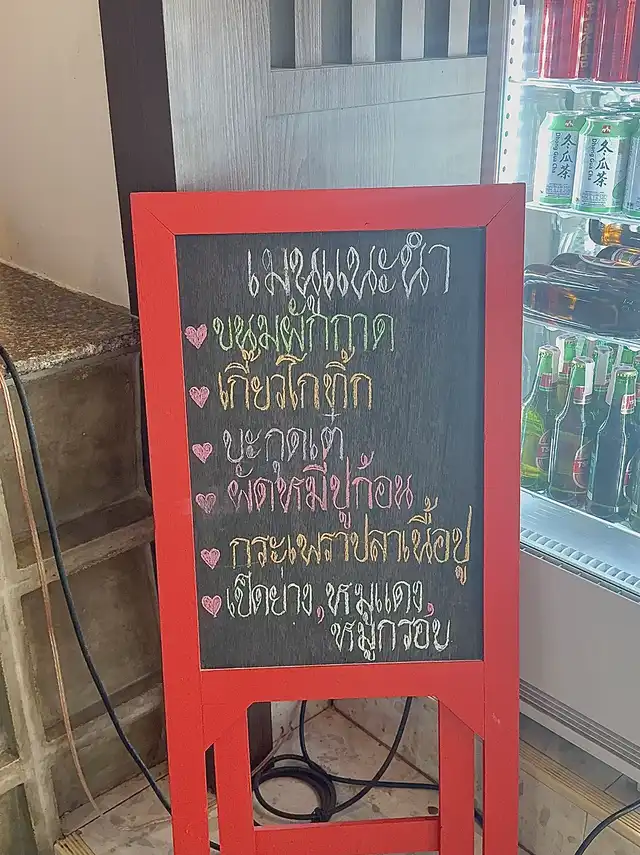 เมนูแนะนำ
ขนมผักกาด
เกี้ยวไก่ทิ้ก
บะกุดเต๋
ผัดหมี่ปูก้อน
กระเพาะปลาเนื้อปู
เป็ดย่าง,หมูแดง,
หมูกรอบ
冬瓜茶
冬瓜茶
Dong Gua Cha
Dong Gua Cha